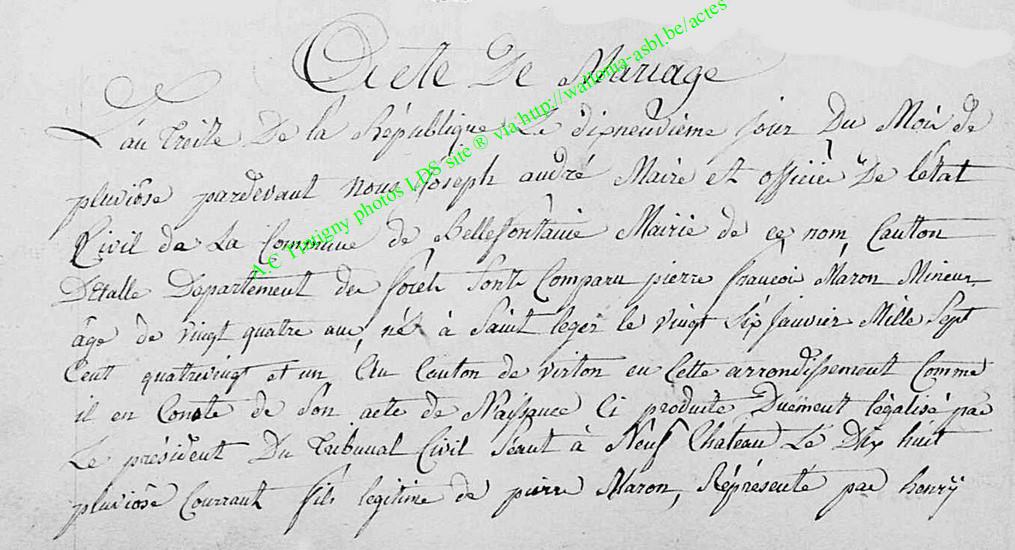 Acte De Mariage
L'an treize De la République Le dixneuvième jour Du Mois de
pluviôse pardevant nous Joseph andré Maire et officier De letat
Civil de La Commune de Bellefontaine Mairie de ce nom, Canton
Detalle Département des forêts sont Comparu pierre françois Maron Mineur
âge de vingt quatre ans, né à Saint leger le vingt Six Janvier Mille Sept
Cent quatrevingt et un Au Canton de virton en Cette arrondissement Comme
il en Conste de Son acte de Naissance Ci produite Duëment légalisé par
Le président Du Tribunal Civil séant à Neuf Chateau Le Dix huit
pluviôse Courrant fils legitime de pierre Maron, Réprésenté par henrÿ
A.C Tintigny photos LDS site ® via http://wallonia-asbl.be/actes